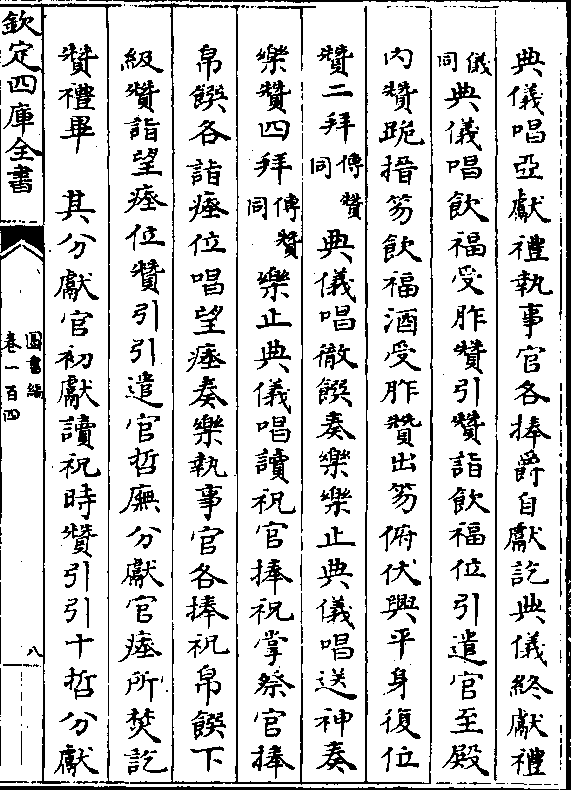 典儀唱亞獻禮執事官各捧爵自獻訖典儀終獻禮
儀同典儀唱飲福受胙贊引贊詣飲福位引遣官至殿
内贊跪搢笏飲福酒受胙贊出笏俯伏興平身復位
贊二拜傳贊同典儀唱徹饌奏樂樂止典儀唱送神奏
樂贊四拜傳贊同樂止典儀唱讀祝官捧祝掌祭官捧
帛饌各詣瘞位唱望瘞奏樂執事官各捧祝帛饌下
級贊詣望瘞位贊引引遣官哲廡分獻官瘞所焚訖
贊禮畢　其分獻官初獻讀祝時贊引引十哲分獻
欽定四庫全書
圖書編
卷一百四
八